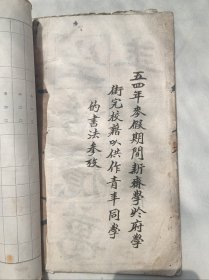 五四年麥假期間新齋學於府學
街完校藉以供作青年同學
的書法參攷